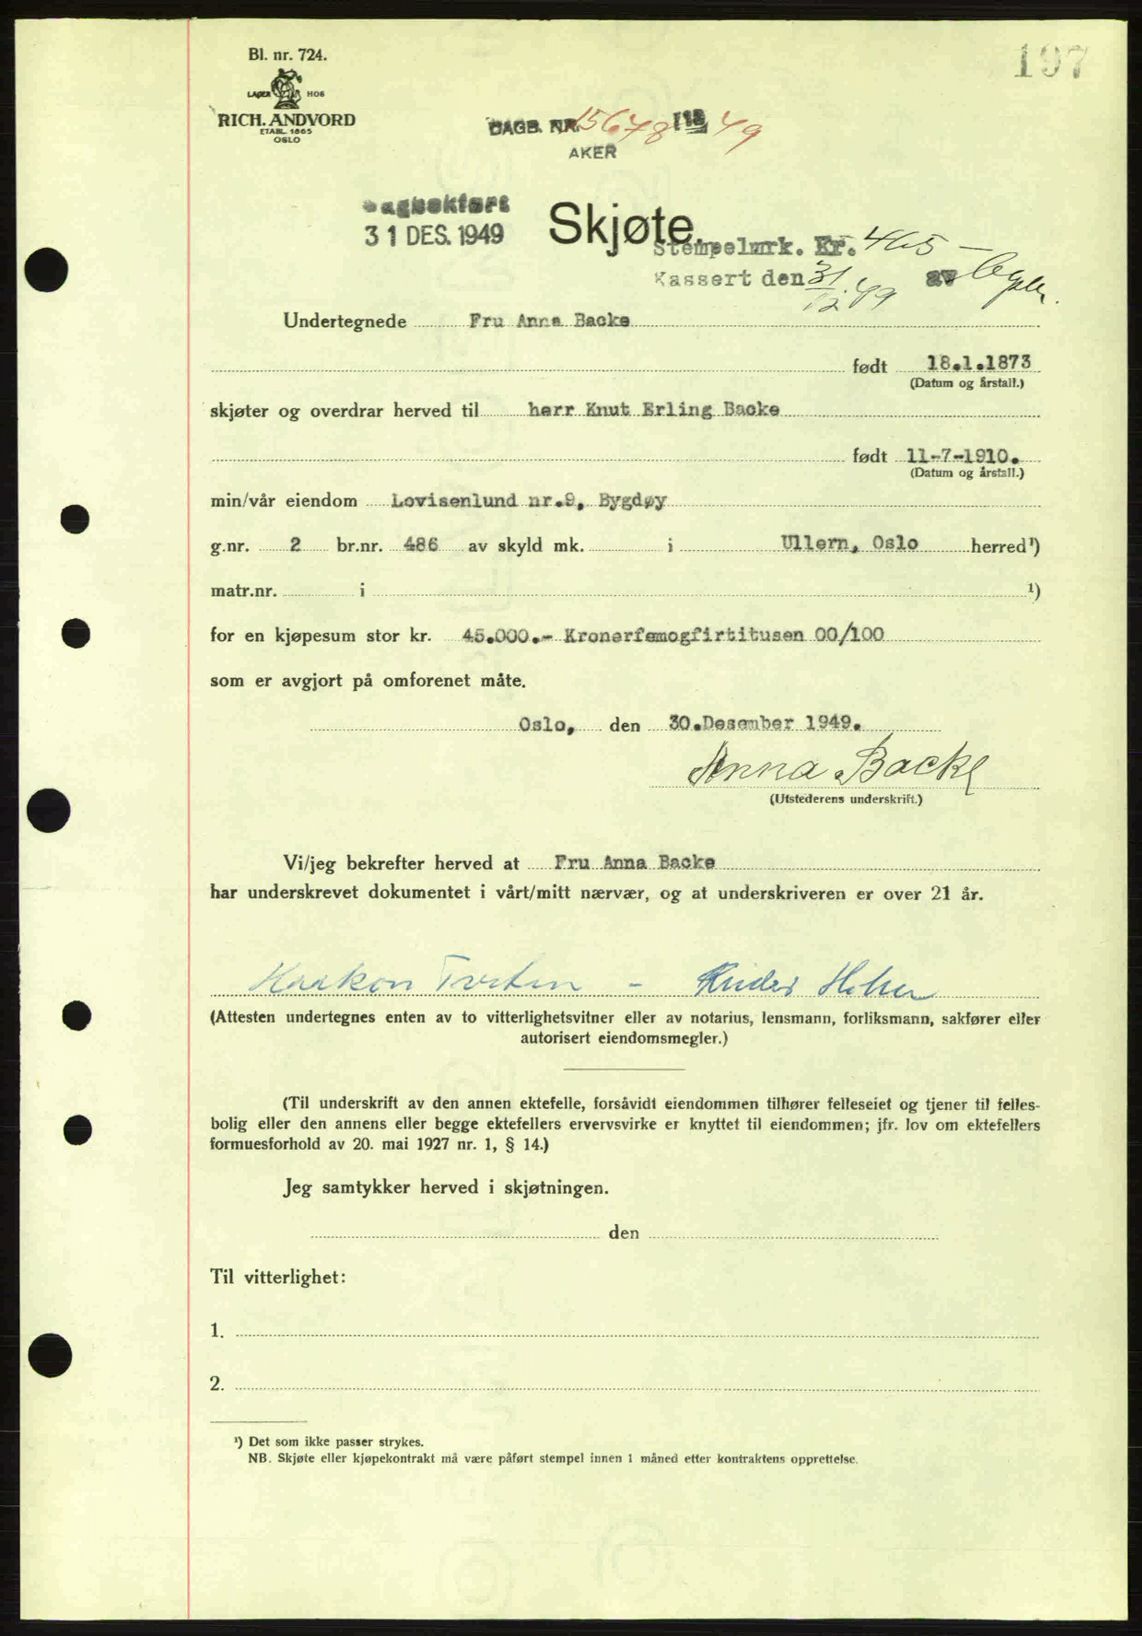 Bl. nr. 724.
197
LAGER HOS
RICH. ANDVORD
ETABL. 1865
OSLO
DAGB. NR. 15678 49
AKER
Dagbokført
31 DES. 1949
Skjøte.
Stempelmrk. Kr. 465 -
Kassert den 31/12.49 av
Undertegnede Fru Anna Backe
født 18.1.1873
(Datum og årstall.)
skjøter og overdrar herved til herr Knut Erling Backe
født 11-7-1910.
(Datum og årstall.)
min/vår eiendom Lovisenlund nr.9, Bygdøy
g.nr. 2 br.nr. 486 av skyld mk. i Ullern, Oslo herred¹)
matr.nr. i ¹)
for en kjøpesum stor kr. 45.000.- Kronerfemogfirtitusen 00/100
som er avgjort på omforenet måte.
Oslo, den 30.Desember 1949.
Anna Backe
(Utstederens underskrift.)
Vi/jeg bekrefter herved at Fru Anna Backe
har underskrevet dokumentet i vårt/mitt nærvær, og at underskriveren er over 21 år.
Haakon Tveten -
(Attesten undertegnes enten av to vitterlighetsvitner eller av notarius, lensmann, forliksmann, sakfører eller
autorisert eiendomsmegler.)
(Til underskrift av den annen ektefelle, forsåvidt eiendommen tilhører felleseiet og tjener til felles-
bolig eller den annens eller begge ektefellers ervervsvirke er knyttet til eiendommen; jfr. lov om ektefellers
formuesforhold av 20. mai 1927 nr. 1, § 14.)
Jeg samtykker herved i skjøtningen.
den
Til vitterlighet:
1.
2.
¹) Det som ikke passer strykes.
NB. Skjøte eller kjøpekontrakt må være påført stempel innen 1 måned etter kontraktens opprettelse.